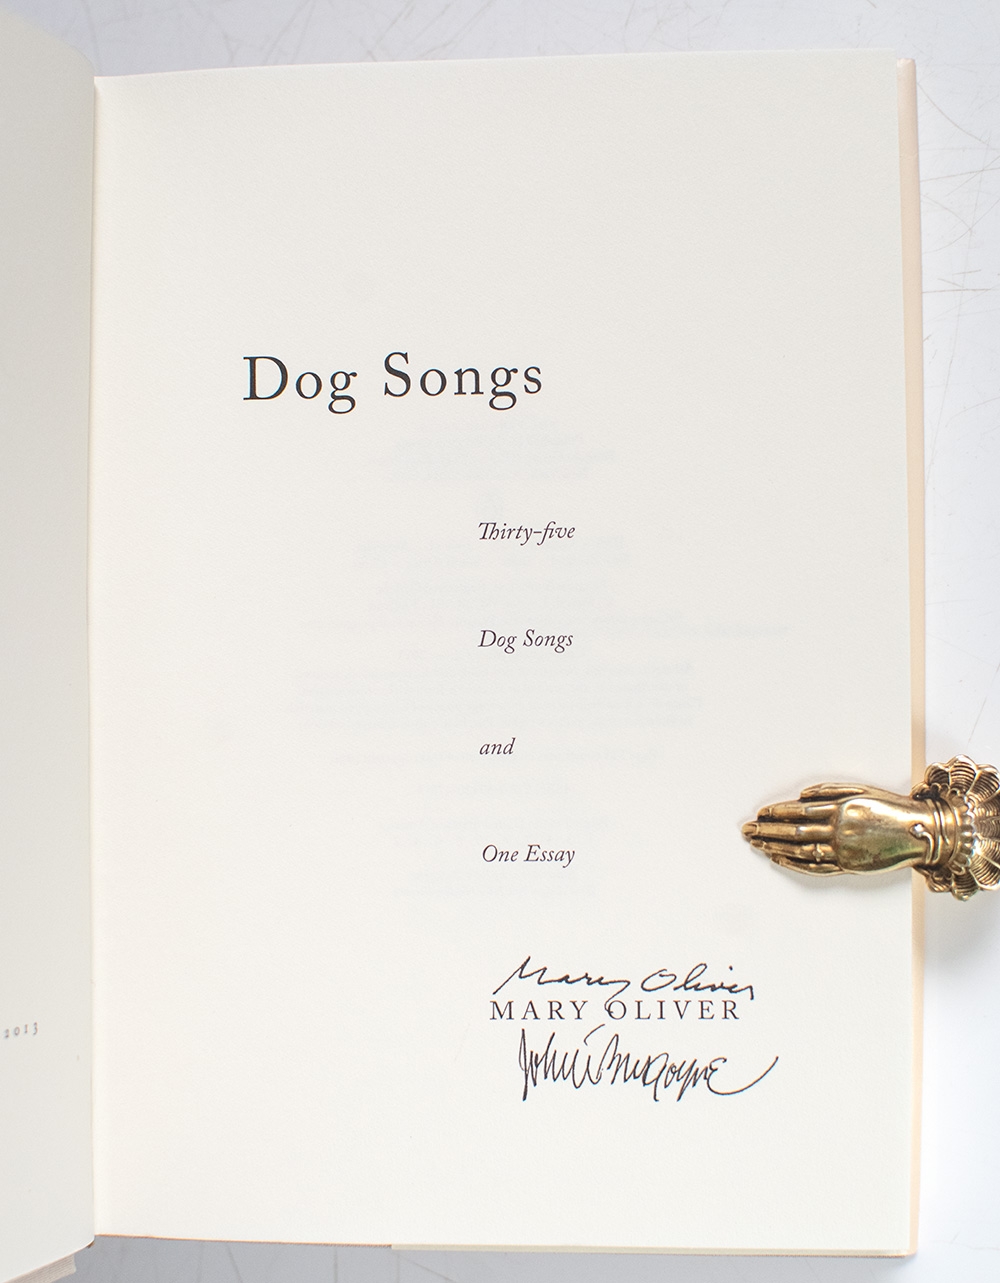 2013
Dog Songs
Thirty-five
Dog Songs
and
One Essay
Mary Oliver
MARY OLIVER
John